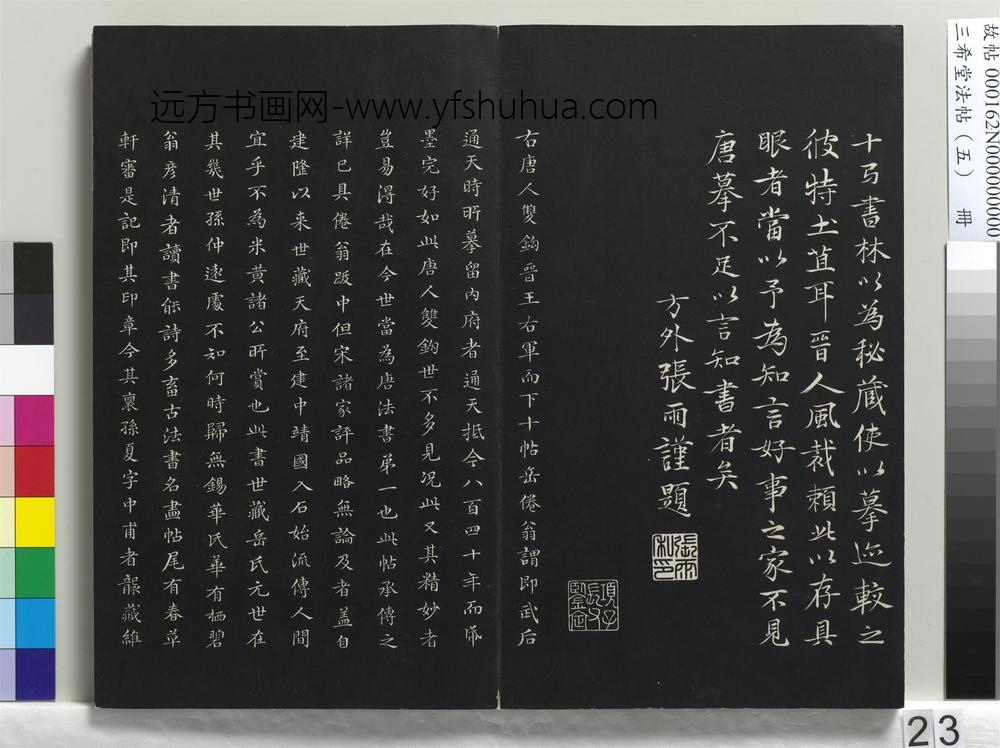 十弓書林以為秘藏使以摹迹較之
彼特土苴耳晉人風裁賴此以存具
眼者當以予為知言好事之家不見
唐摹不足以言知書者矣
方外張雨謹題
張雨私印
項子長父鑒定
右唐人雙鈎晉王右軍而下十帖岳倦翁謂即武后
通天時所摹留內府者通天抵今八百四十年而紙
墨完好如此唐人雙鈎世不多見况此又其精妙者
豈易得哉在今世當為唐法書第一也此帖承傳之
詳已具倦翁跋中但宋諸家評品略無論及者盖自
建隆以来世藏天府至建中靖國入石始流傳人間
宜乎不為米黄諸公所賞也此書世藏岳氏元世在
其幾世孫仲遠處不知何時歸無錫華氏華有栖碧
翁彦清者讀書能詩多畜古法書名畫帖尾有春草
軒審定記即其印章今其裔孫夏字中甫者襲藏維
远方书画网-www.yfshuhua.com
故帖000162N000000000
三希堂法帖（五） 冊
23